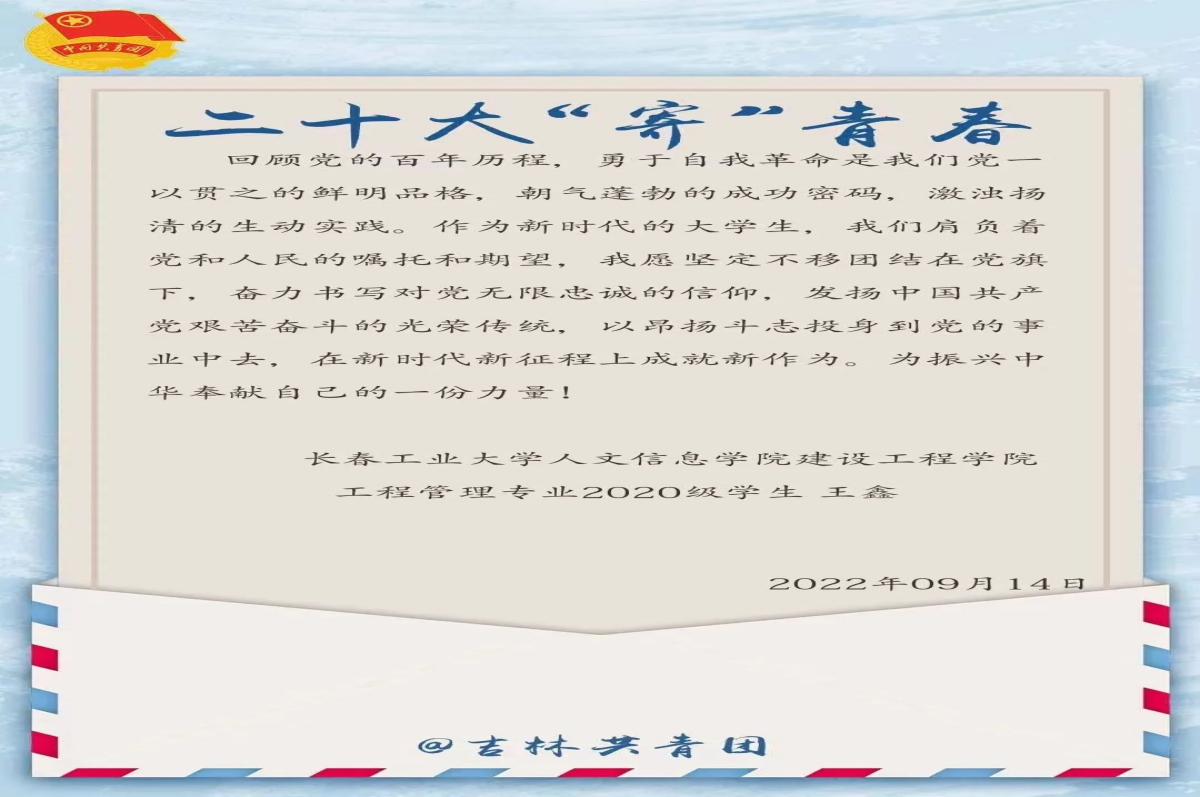 中国共青团
二十大“寄”青春
回顾党的百年历程，勇于自我革命是我们党一
以贯之的鲜明品格，朝气蓬勃的成功密码，激浊扬
清的生动实践。作为新时代的大学生，我们肩负着
党和人民的嘱托和期望，我愿坚定不移团结在党旗
下，奋力书写对党无限忠诚的信仰，发扬中国共产
党艰苦奋斗的光荣传统，以昂扬斗志投身到党的事
业中去，在新时代新征程上成就新作为。为振兴中
华奉献自己的一份力量！
长春工业大学人文信息学院建设工程学院
工程管理专业2020级学生 王鑫
2022年09月14日
@吉林共青团